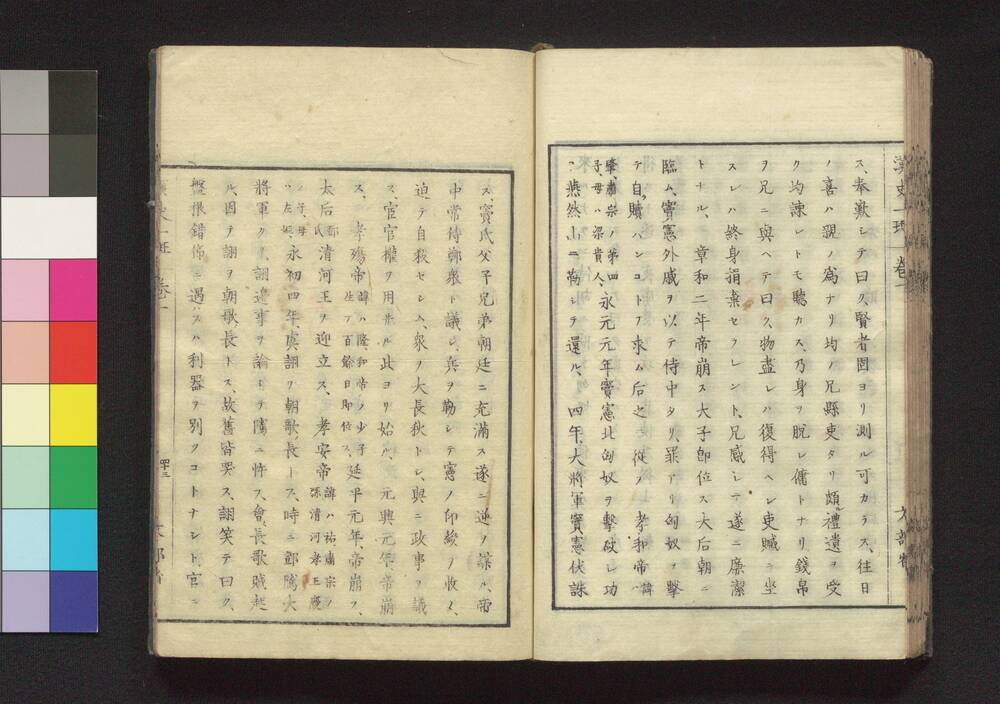 漢史一班 卷一
ス、奉歎シテ曰ク、賢者固ヨリ測ル可カラス、往日
ノ喜ハ親ノ為ナリ均ノ兄縣吏タリ頗禮遺ヲ受
ク均諫レトモ聽カス、乃身ヲ脱レ傭トナリ錢帛
ヲ兄ニ與ヘテ曰ク、物盡レハ復得ヘシ吏贓ニ坐
スレハ終身捐棄セラレント、兄感シテ遂ニ廉潔
トナル、章和二年帝崩ス大子卽位ス大后朝ニ
臨ム、竇憲外戚ヲ以テ侍中タリ、罪アリ匈奴ヲ擊
テ自贖ハンコトヲ求ム后之ニ從フ、孝和帝ハ諱
肇、肅宗ノ第四子、母ハ梁貴人、永元元年竇憲北匈奴ヲ擊破シ功
ヲ燕然山ニ勒シテ還ル、四年、大將軍竇憲伏誅
ス、竇氏父子兄弟朝廷ニ充滿ス遂ニ逆ヲ謀ル、帝
中常侍鄭衆ト議シ、兵ヲ勒シテ憲ノ印綬ヲ收メ、
迫テ自殺セシム、衆ヲ大長秋トシ、與ニ政事ヲ議
ス、宦官權ヲ用ヰル此ヨリ始ル、元興元年帝崩
ス、孝殤帝諱ハ隆、和帝ノ少子生テ百餘日即位ス、延平元年、帝崩ス、
太后鄧氏清河王ヲ迎立ス、孝安帝諱ハ祐肅宗ノ孫清河孝王慶
ノ子、母ハ左姬、永初四年、虞詡ヲ朝歌長トス、時ニ鄧騭大
將軍タリ、詡邊事ヲ論シテ騭ニ忤フ、會長歌賊起
ル、因テ詡ヲ朝歌長トス、故舊皆弔ス、詡笑テ曰ク、
盤根錯節ニ遇ハスハ利器ヲ別ツコトナシト、官ニ
四十三